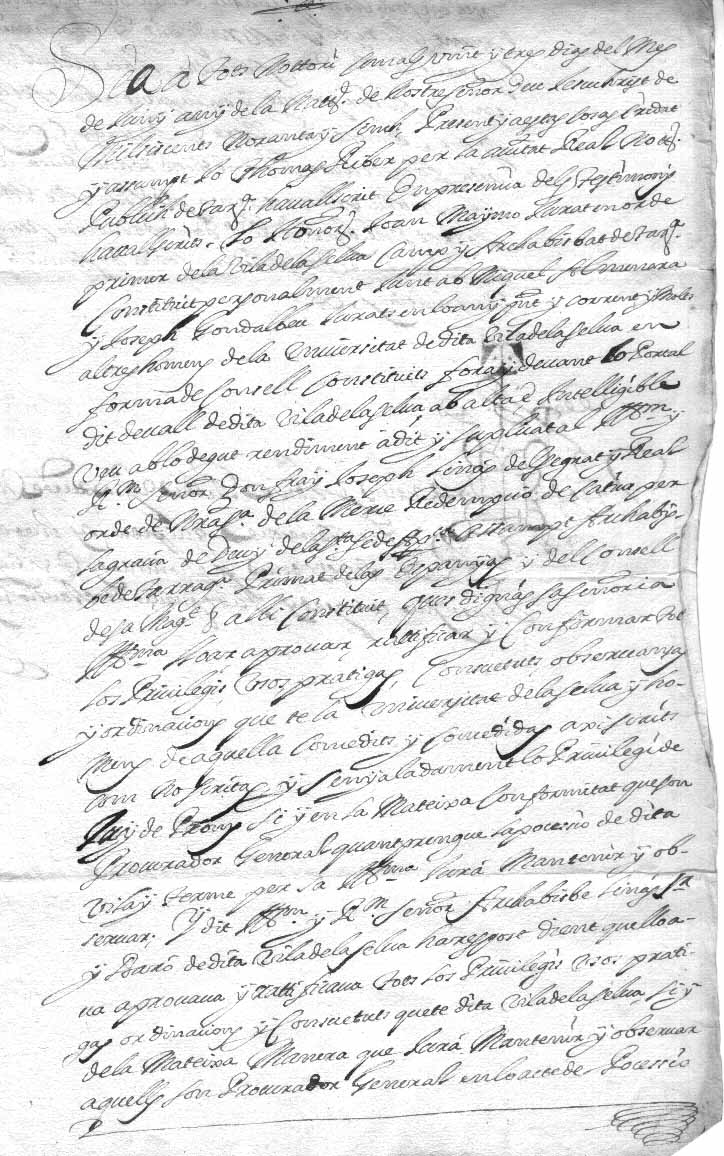 Sia a tots Nottori Com als vint y tres dias del Mes
de Juny any de la Nattt. de Nostre señor Deu Jesuchrist de
Milsiscents Norantay sinch, Present y a estas cosas Cridat
y assumpt lo Thomas Riber per la auttat Real Not.
Publich de Tarr. havallscrit En presencia dels Testimonis
havallscrits. Lo Honor. Joan Maymo Jurat en orde
primer de la Viladelaselva Camp y Archabisbat de Tarr.
Constituit personalment Junt ab Miquel Almenara
y Joseph Gondalbeu Jurats en lo any pnt y corrent y Molts
altres homens de la Universitat de dita Viladelaselva en
forma de Consell Constituits fora y devant lo Portal
dit devall de dita Viladelaselva ab alta e Intelligible
veu ab lo degut rendiment à dit y suplicat al Illm. y
R.mo señor Don fray Joseph Linas de Segrat y Real
orde de Nra S.a de la Merce Redempcio de Catius per
la gracia de Deu y de la S.ta Sede App.ca Archabis-
be de Tarrag.a Primat de las Espanyas y del Consell
de sa Mag.t alli Constituit, ques dignàs sa señoria
Illma loar aprovar, rattificar y Confirmar tots
los Privilegis Usos pratigas Consuetuts observansas
y ordinacions que te la Universitat de la selva y ho-
mens de aquella Concedits y Concedidas axi scrits
com no scritas, y senyaladament lo Privilegi de
Si y en la Mateixa Conformitat que son
Procurador General quant prengue la pocessio de dita
Vila y terme per sa Illma Jurà Mantenir y ob-
servar; Y dit Illm. y R.m señor Archabisbe Linàs Sr
y Baró de dita Viladelaselva ha respost dient que lloa-
va aprovava y rattificava tots los Privilegis Usos prati-
gas ordinacions y Consuetuts que te dita Viladelaselva si y
de la Mateixa Manera que Jurà Mantenir y observar
aquells son Procurador General en lo acte de Pocessio